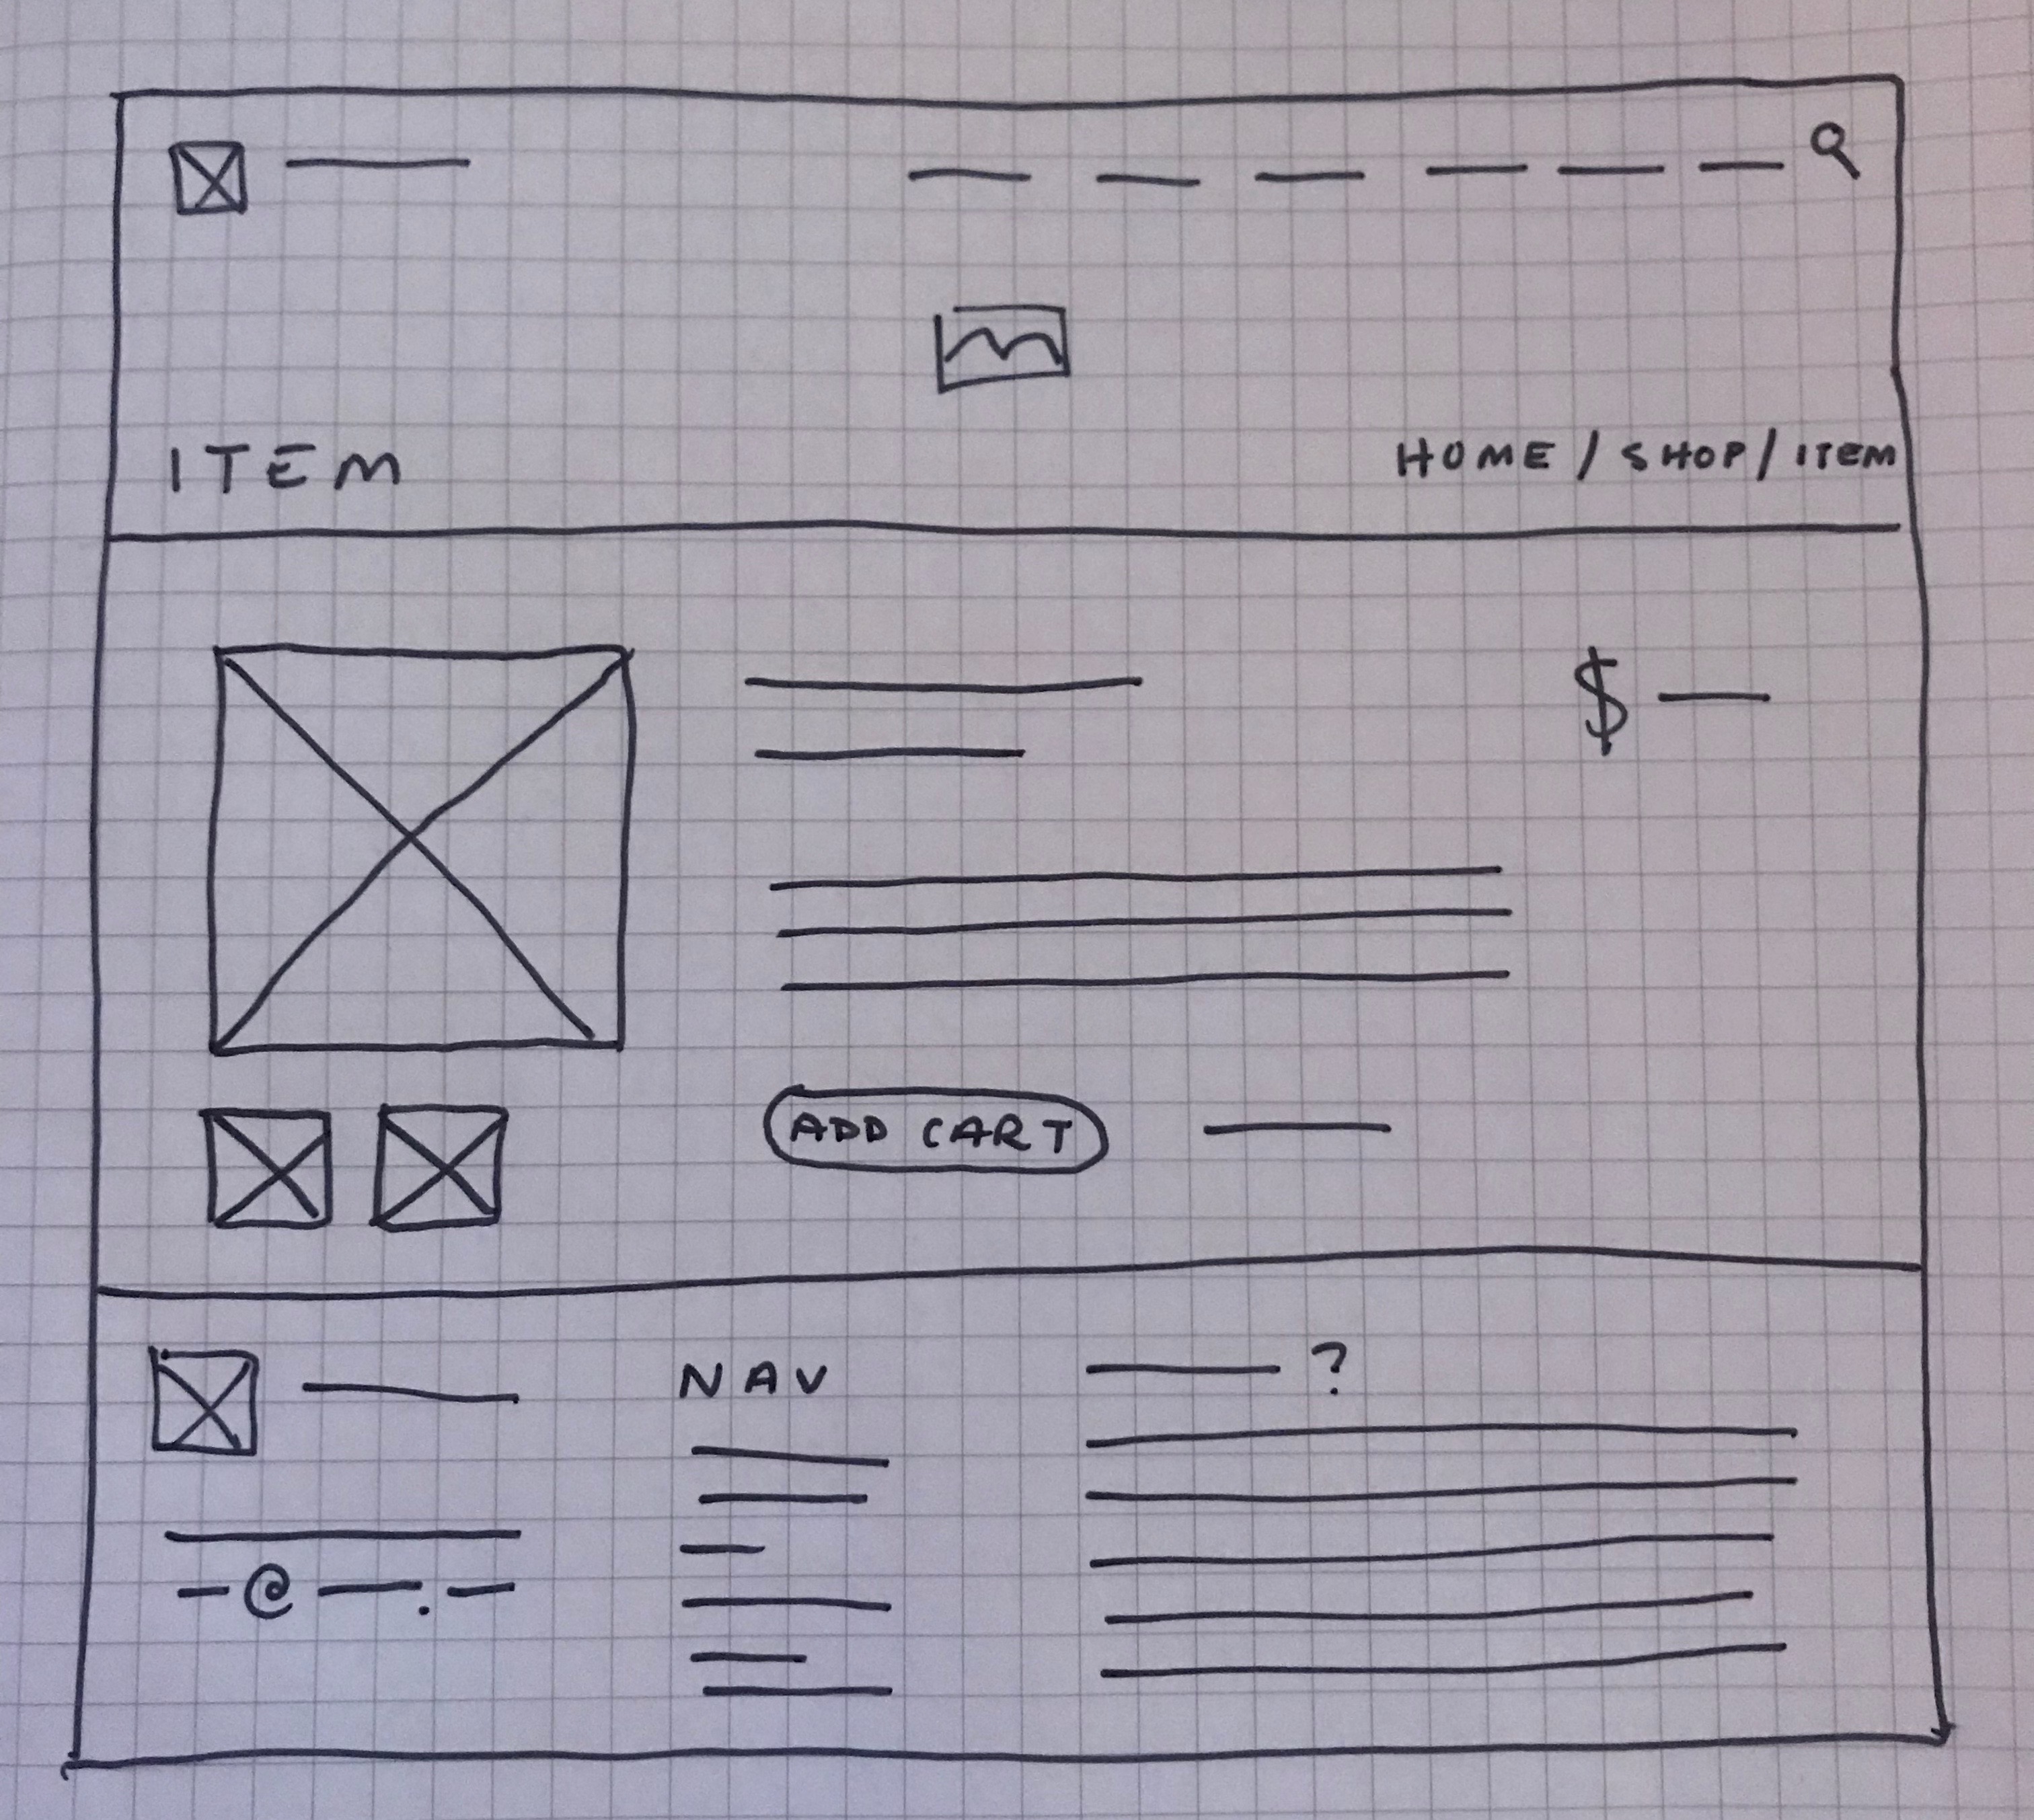 ITEM
HOME / SHOP / ITEM
$
ADD CART
NAV
?
@ .